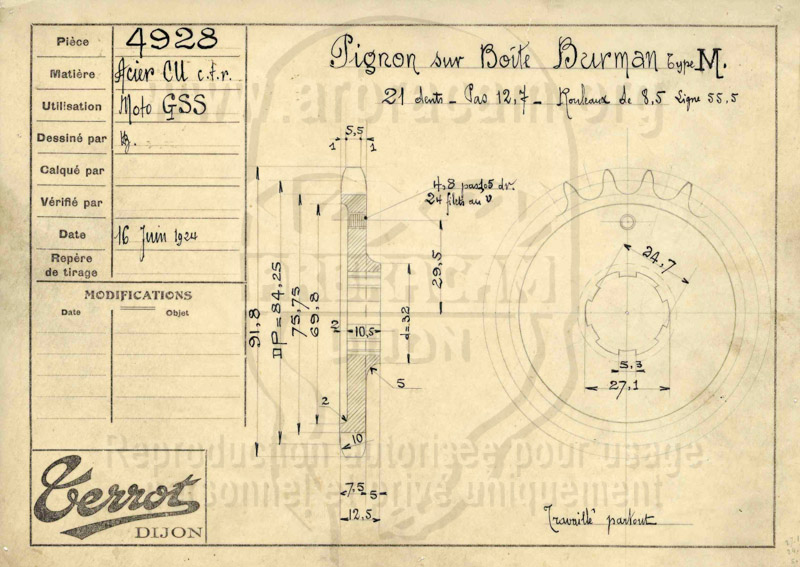 Pièce 4928
Matière Acier CU c.f.r.
Utilisation Moto GSS
Dessiné par
Calqué par
Vérifié par
Date 16 Juin 1924
Repère
de tirage
MODIFICATIONS
Date Objet
Terrot
DIJON
Pignon sur Boîte Burman type M.
21 dents - Pas 12,7 - Rouleaux de 8,5 Ligne 55,5
5,5
1 1
4,8 pas
24 filets au
91,8
DP = 84,25
75,75
69,8
2
10,5
d=32
29,5
5
2
10
7,5 5
12,5
24,7
5,3
27,1
Travaillé partout
www.arbracam.org
DIJON
Reproduction autorisée pour usage
personnel et privé uniquement